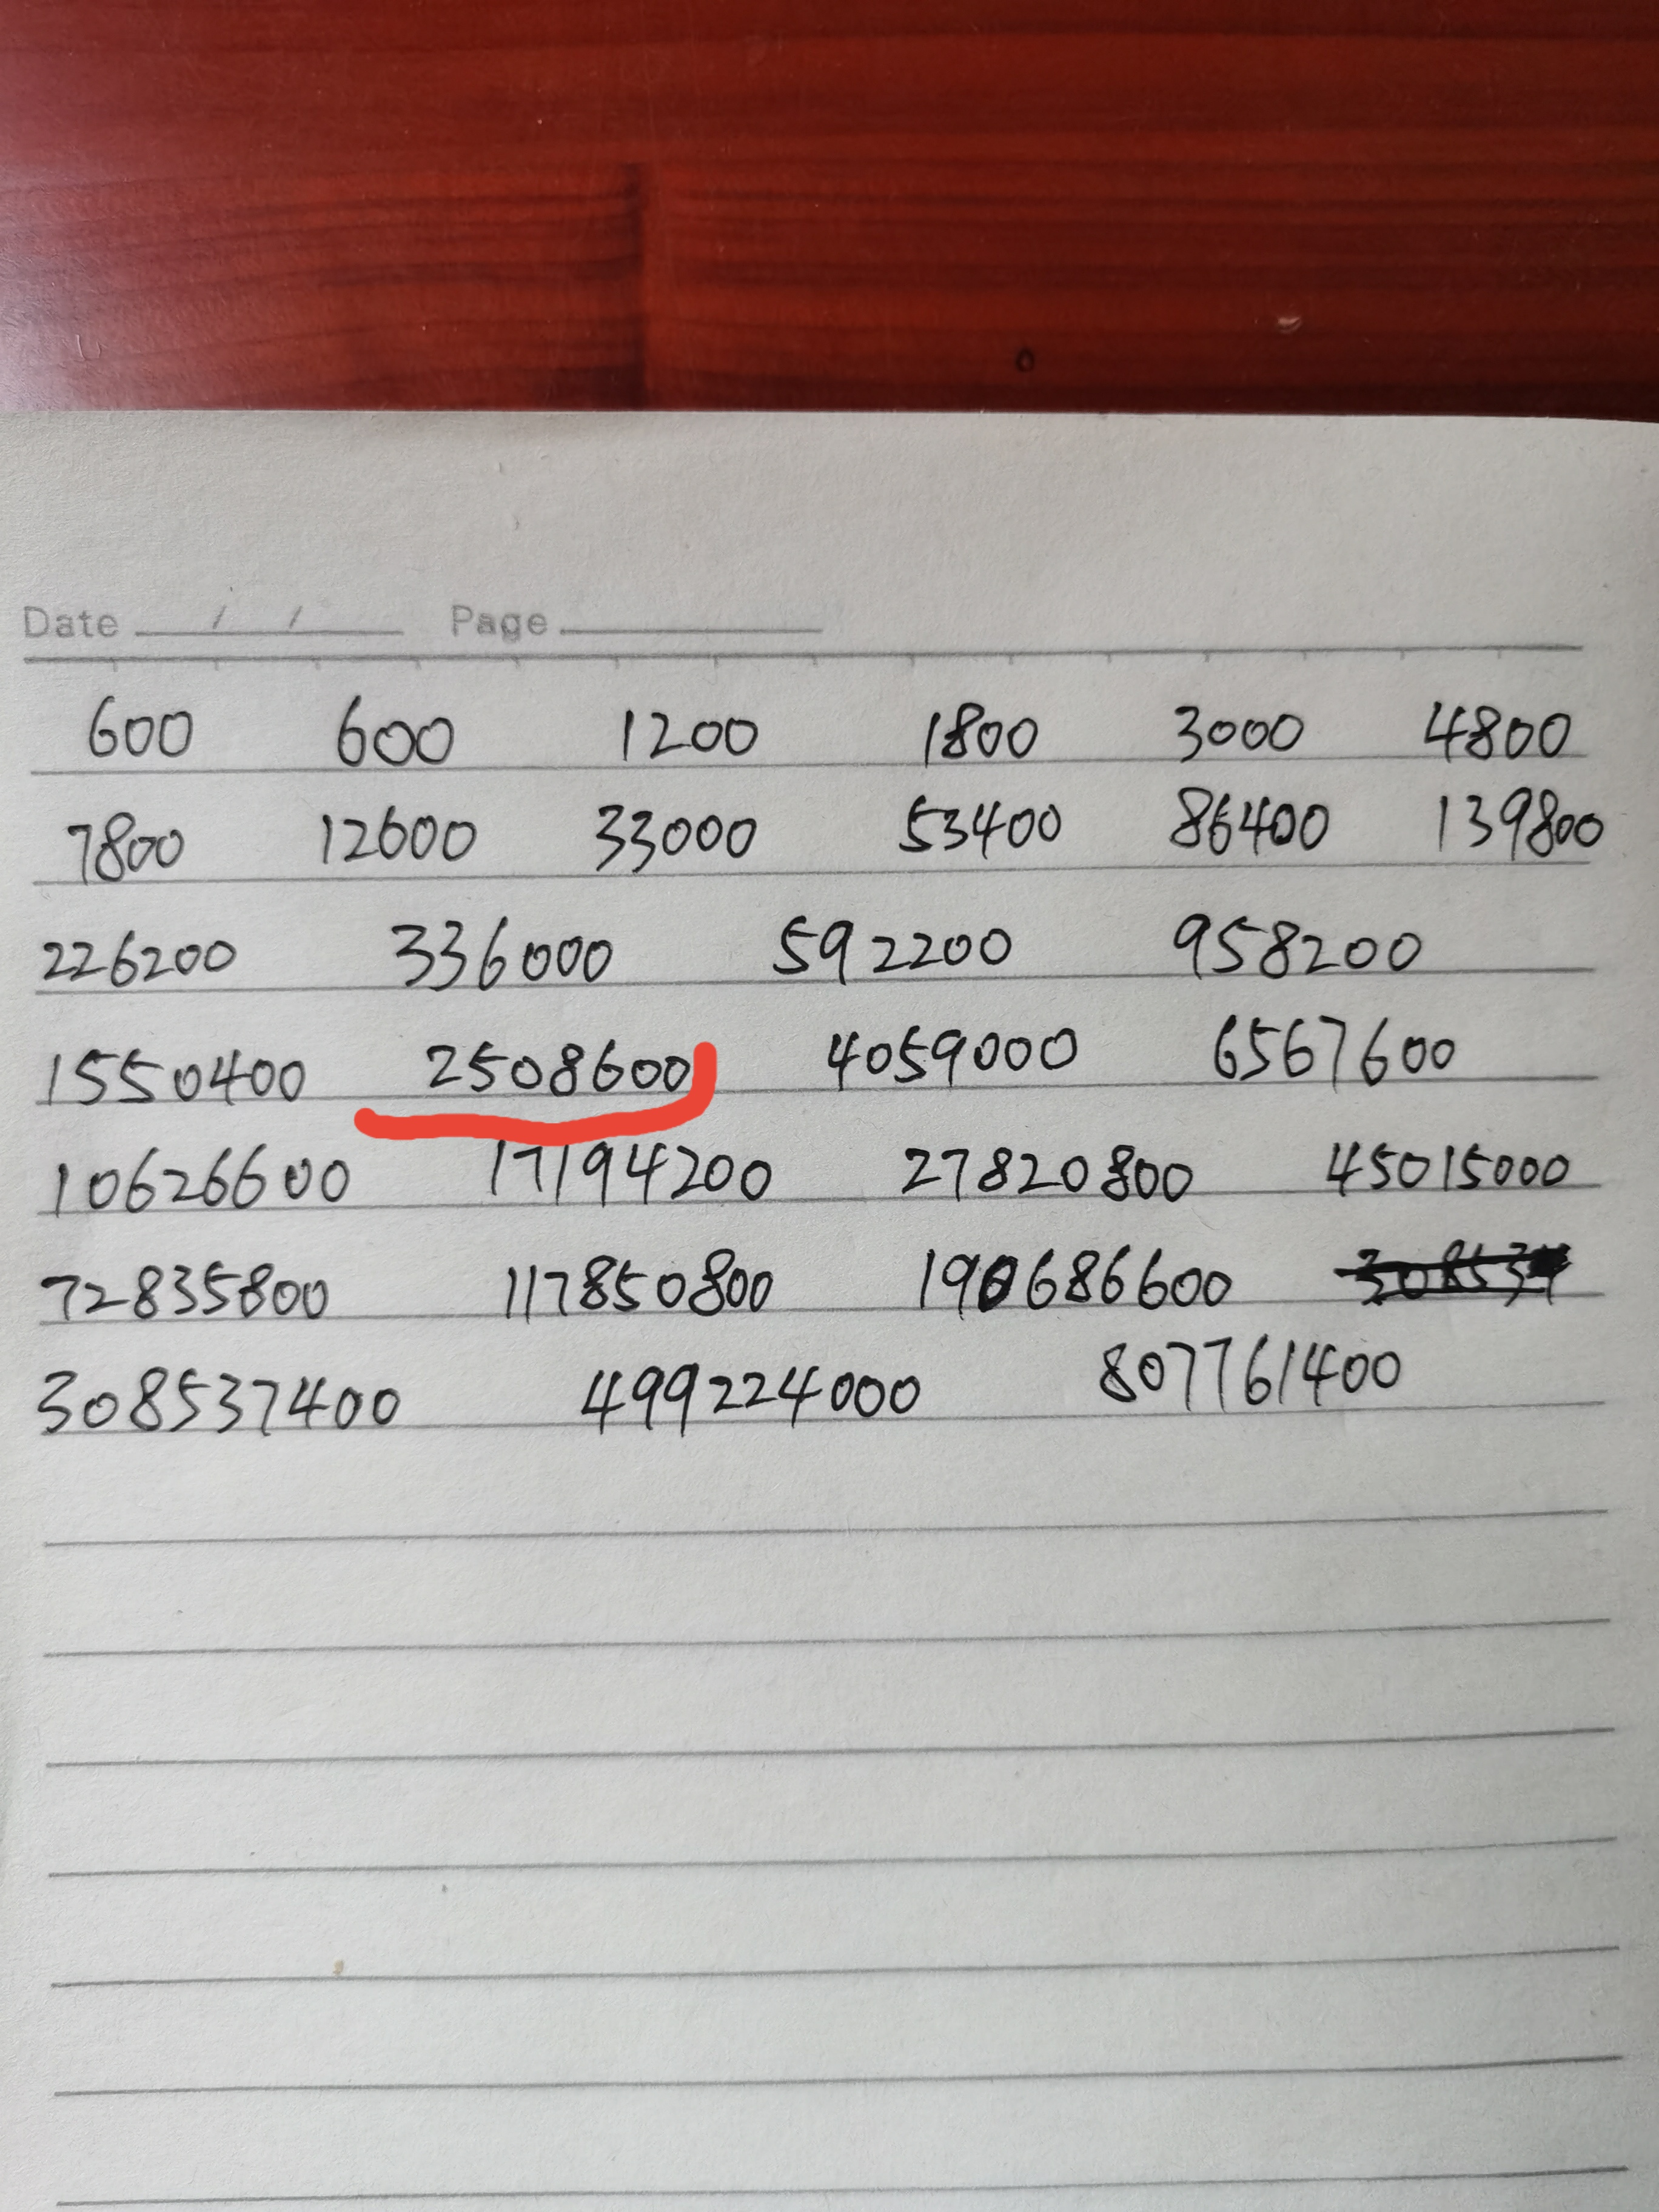 Date / / Page
600 600 1200 1800 3000 4800
7800 12600 33000 53400 86400 139800
226200 336000 592200 958200
1550400 2508600 4059000 6567600
10626600 17194200 27820800 45015000
72835800 117850800 190686600
308537400 499224000 807761400